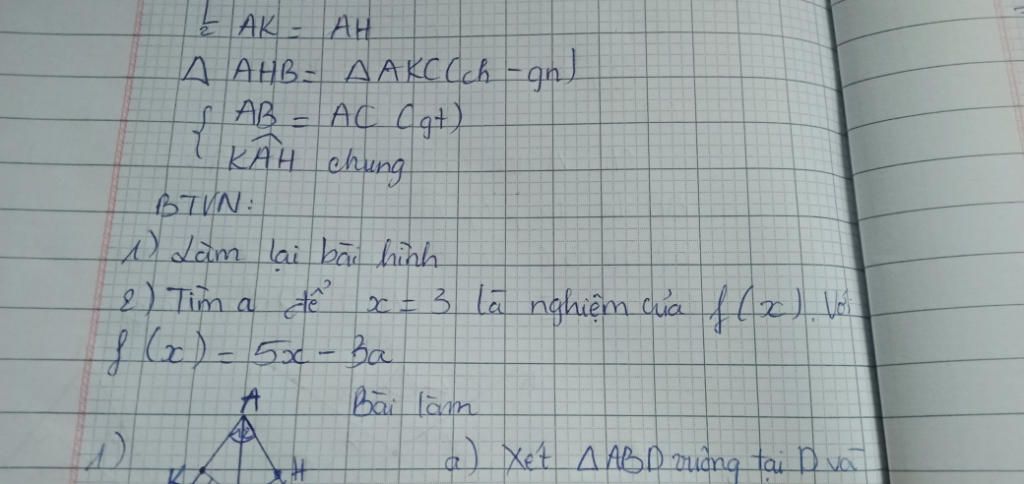 1/2 AK = AH
Δ AHB = ΔAKC (ch - gn)
{ AB = AC (gt)
KAH chung
BTVN:
1) Làm lại bài hình
2) Tìm a để x = 3 là nghiệm của f(x). Với
f(x) = 5x - 3a
A Bài làm
1) K H a) Xét ΔABD vuông tại D và